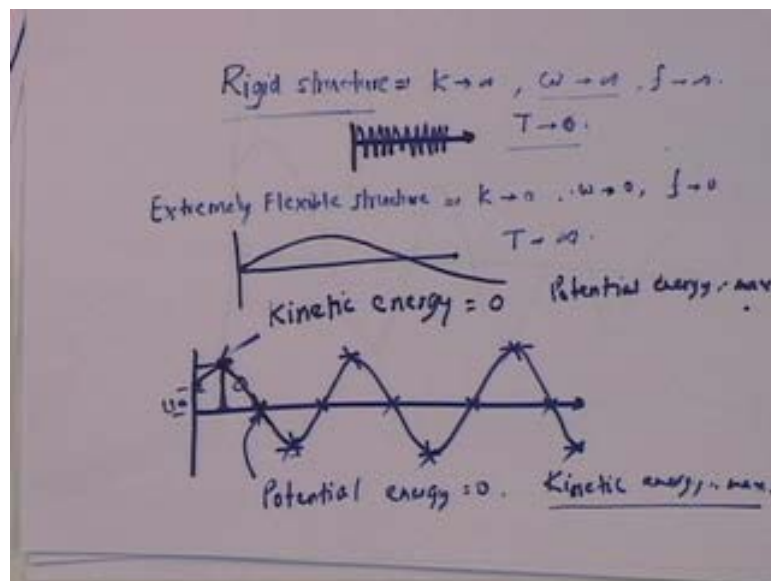 Rigid structure = k→∞, ω→∞, f→∞.
T→0.
Extremely Flexible structure = k→0, ω→0, f→0
T→∞.
Potential energy = max.
Kinetic energy = 0
Potential energy = 0. Kinetic energy = max.